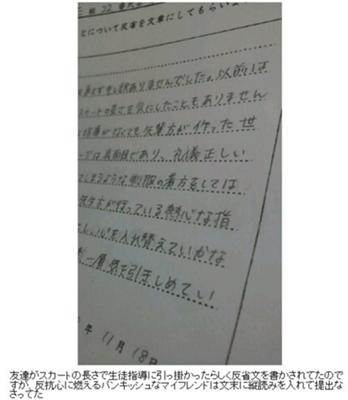 組 22 番氏
とについて反省を文章にしてもらい
申し訳ありませんでした。以前
スカートの長さを気にしたこともありません
がなくても先輩方が作った世
では真面目があり、礼儀正しい
しまうような制服の着方をしては
先生方が行っている熱心な指
心を入れ替えていかな
一層気を引きしめてい
年 11月 18日
友達がスカートの長さで生徒指導に引っ掛かったらしく反省文を書かされてたので
すが、反抗心に燃えるパンキッシュなマイフレンドは文末に縦読みを入れて提出な
さってた